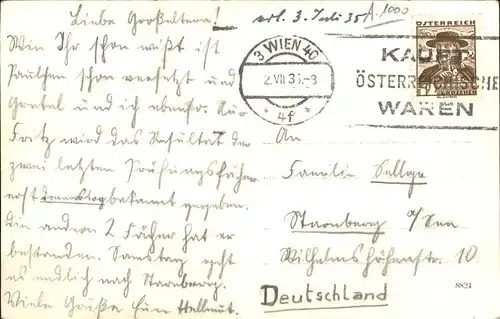 Liebe Großeltern!
erl. 3. Juli 35
A.1000
Wie Ihr schon wißt ist
Paulchen schon versetzt und
Gretel und ich ebenso. Nur
Fritz wird das Resultat der
zwei letzten Prüfungsfächer
erst Donnerstag bekannt gegeben.
Die andern 2 Fächer hat er
bestanden. Samstag geht
es endlich nach Starnberg.
Viele Grüße Euer Hellmut.
3 WIEN 40
2.VII.35-8
* 4f *
ÖSTERREICH
KAUFT
ÖSTERREICHISCHE
WAREN
An
Familie
Starnberg a/See
Wilhelmshöhenstr. 10
Deutschland